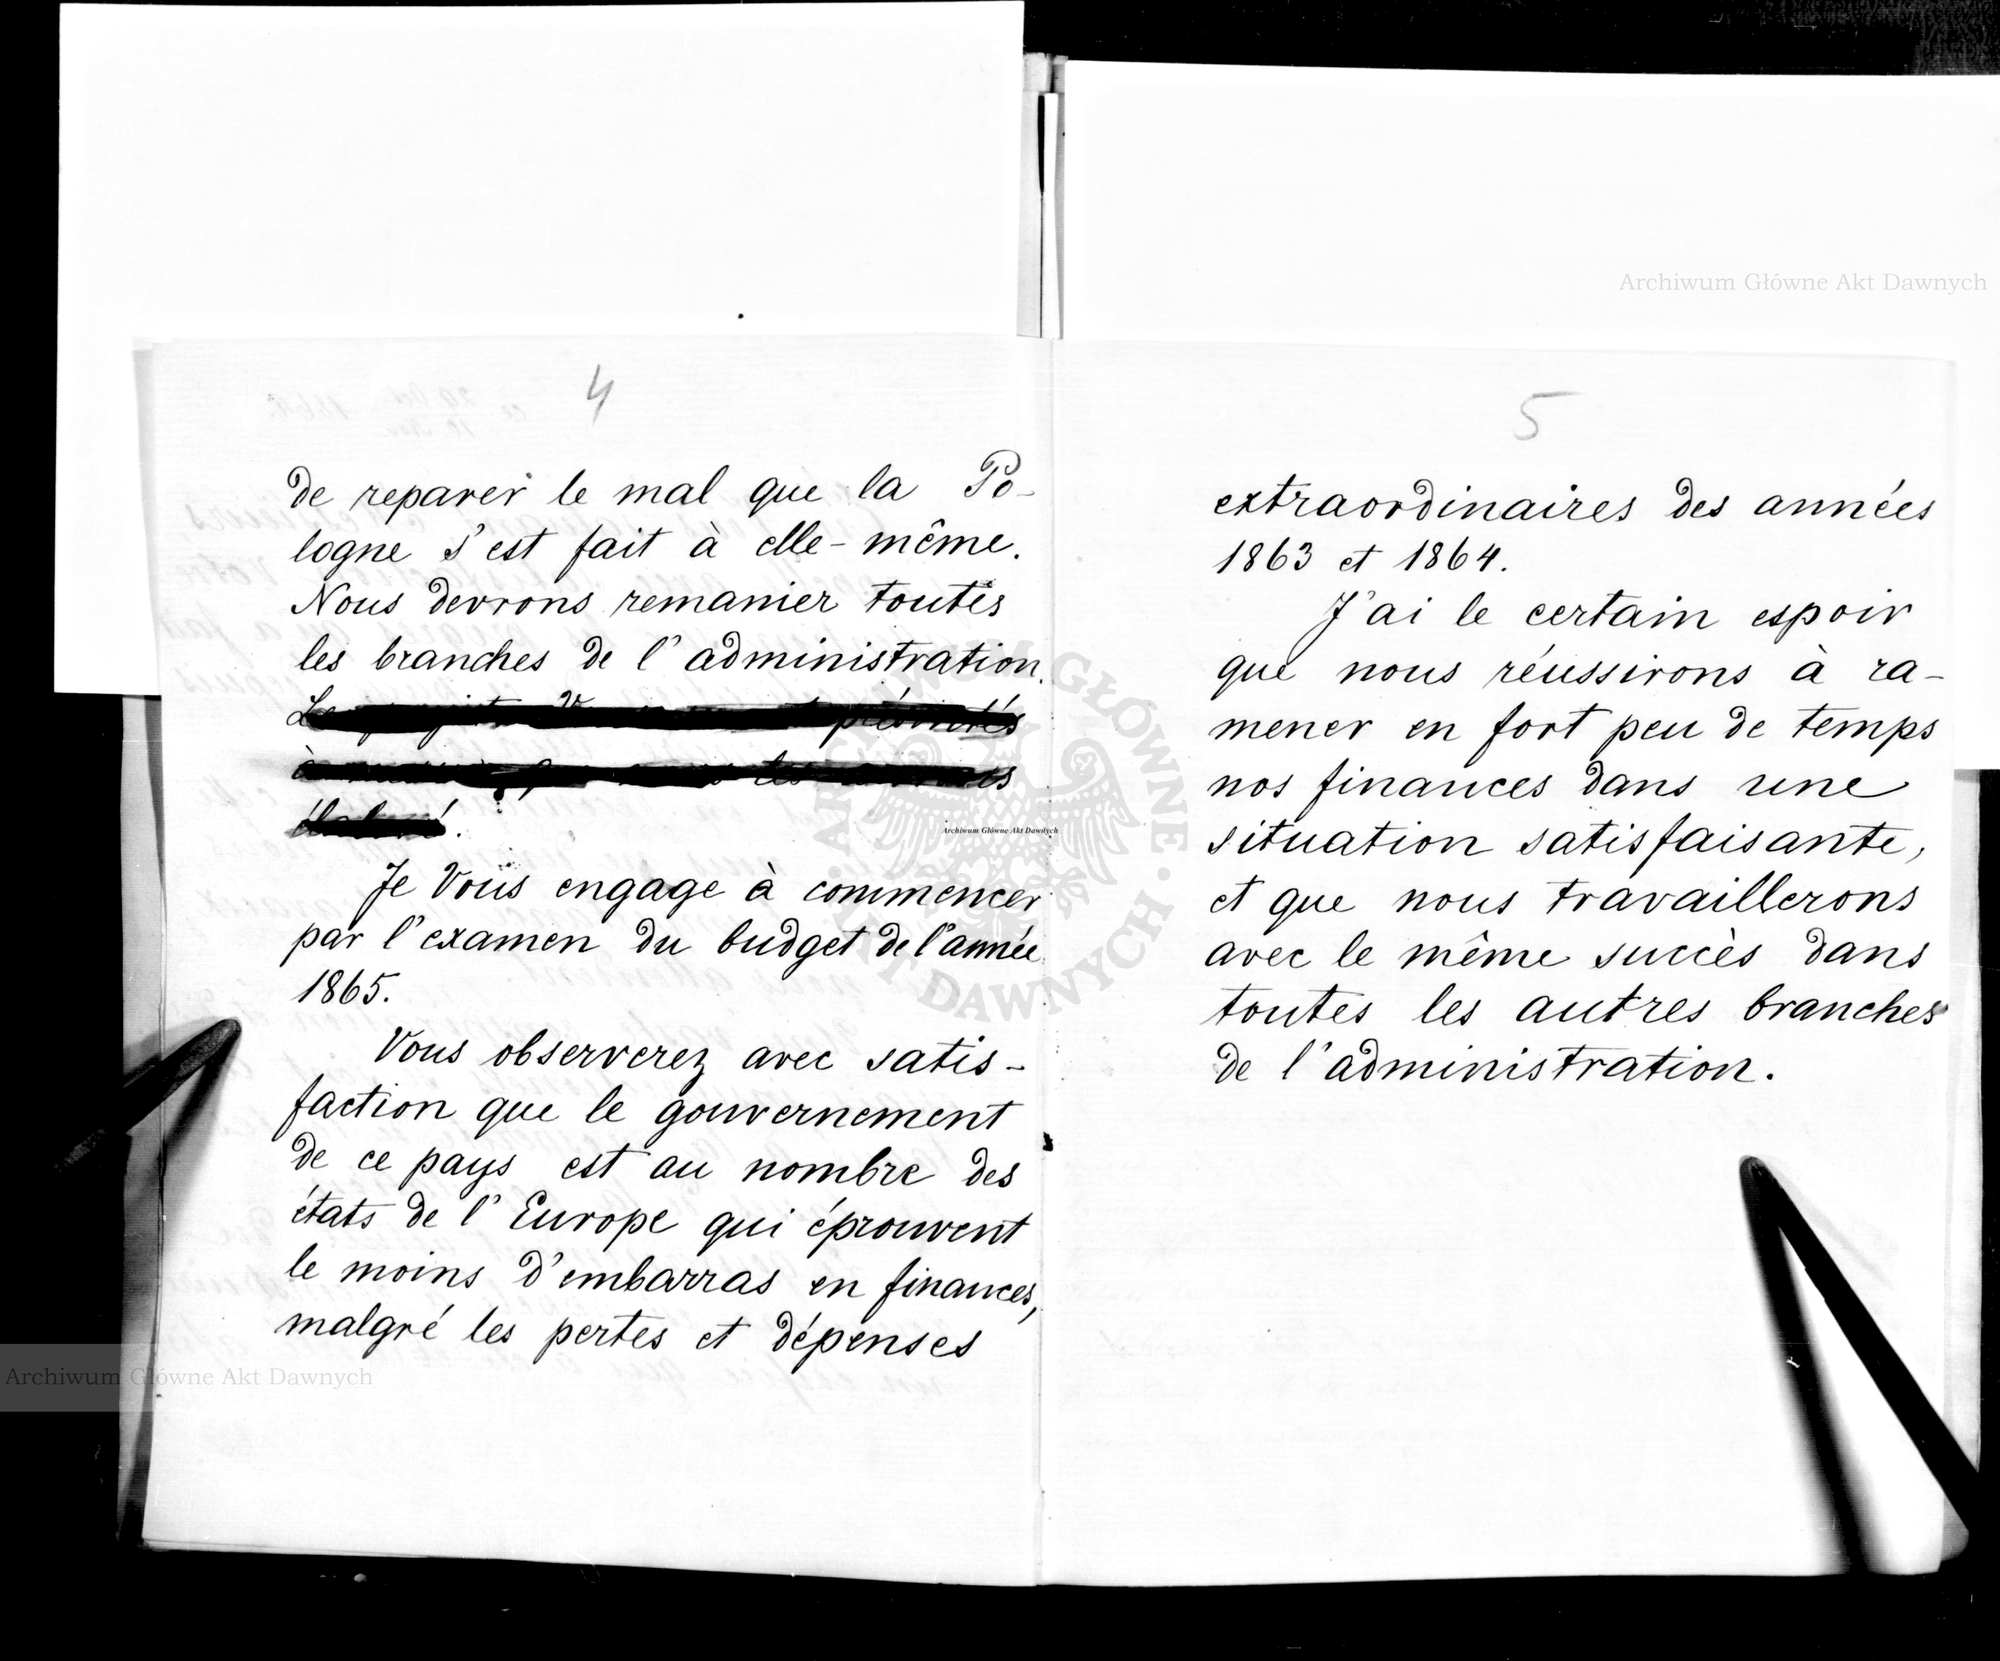 4
de reparer le mal que la Po-
logne s'est fait à elle-même.
Nous devrons remanier toutes
les branches de l'administration.
présentés
les
Je Vous engage à commencer
par l'examen du budget de l'année
1865.
Vous observerez avec satis-
faction que le gouvernement
de ce pays est au nombre des
états de l'Europe qui éprouvent
le moins d'embarras en finances,
malgré les pertes et dépenses
5
extraordinaires des années
1863 et 1864.
J'ai le certain espoir
que nous réussirons à ra-
mener en fort peu de temps
nos finances dans une
situation satisfaisante,
et que nous travaillerons
avec le même succès dans
toutes les autres branches
de l'administration.
Archiwum Główne Akt Dawnych
Archiwum Główne Akt Dawnych
Archiwum Główne Akt Dawnych
ARCHIWUM GŁÓWNE · AKT DAWNYCH ·